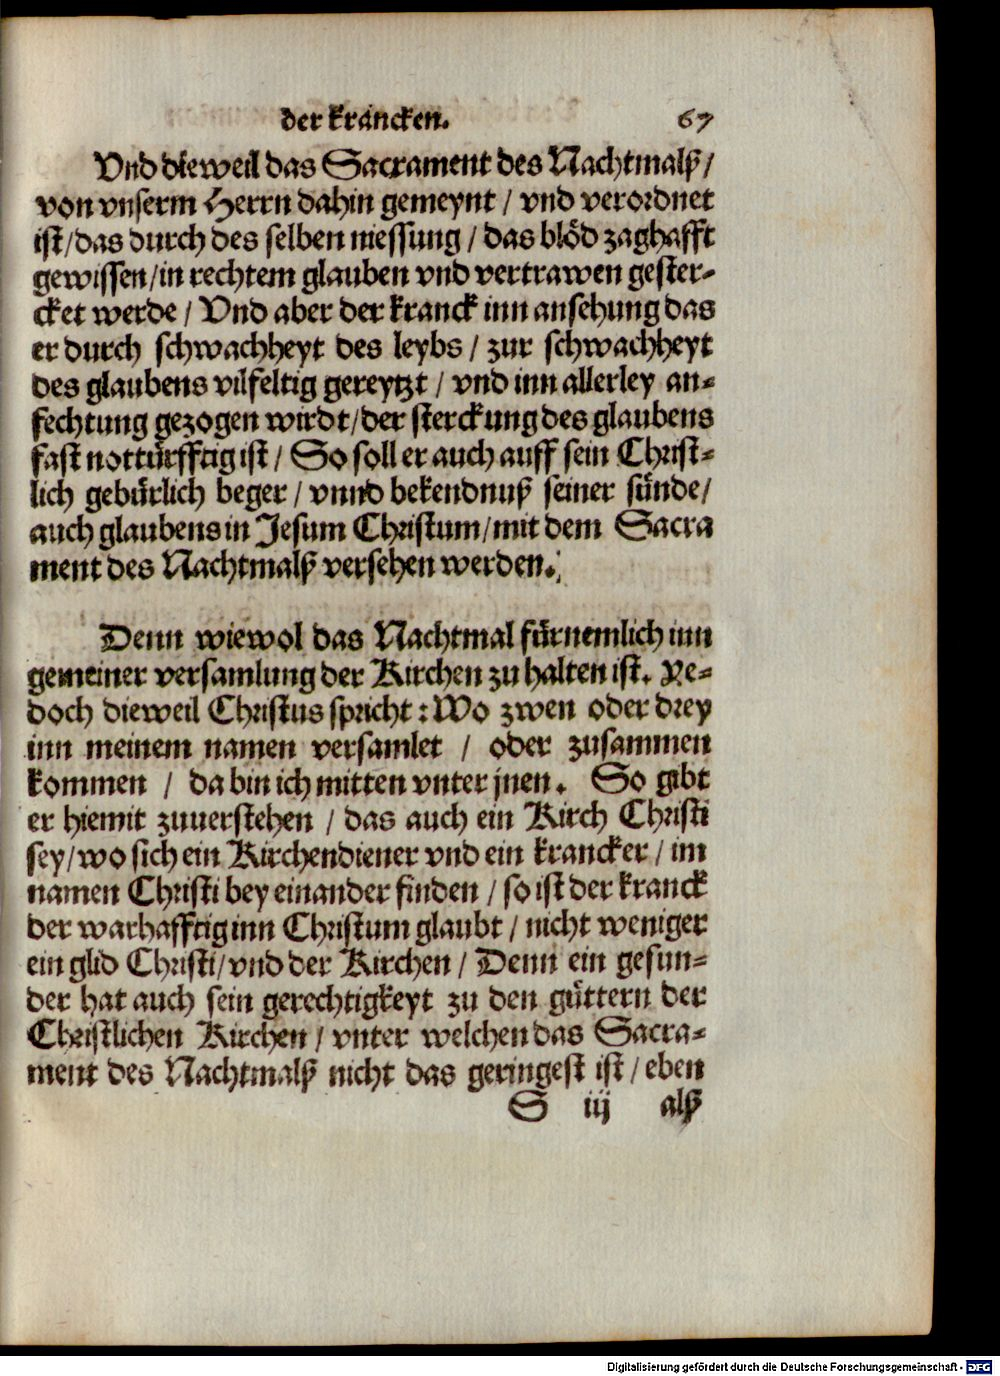 der krancken. 67
Vnd dieweil das Sacrament des Nachtmalß /
von vnserm Herrn dahin gemeynt / vnd verordnet
ist / das durch des selben niessung / das blöd zaghafft
gewissen / in rechtem glauben vnd vertrawen gester-
cket werde / Vnd aber der kranck inn ansehung das
er durch schwachheyt des leybs / zur schwachheyt
des glaubens vilfeltig gereytzt / vnd inn allerley an-
fechtung gezogen wirdt / der sterckung des glaubens
fast nottürfftig ist / So soll er auch auff sein Christ-
lich gebürlich beger / vnnd bekendnuß seiner sünde /
auch glaubens in Jesum Christum / mit dem Sacra
ment des Nachtmalß versehen werden.
Denn wiewol das Nachtmal fürnemlich inn
gemeiner versamlung der Kirchen zu halten ist. Ye-
doch dieweil Christus spricht: Wo zwen oder drey
inn meinem namen versamlet / oder zusammen
kommen / da bin ich mitten vnter jnen. So gibt
er hiemit zuuerstehen / das auch ein Kirch Christi
sey / wo sich ein Kirchendiener vnd ein krancker / im
namen Christi bey einander finden / so ist der kranck
der warhafftig inn Christum glaubt / nicht weniger
ein glid Christi / vnd der Kirchen / Denn ein gesun-
der hat auch sein gerechtigkeyt zu den güttern der
Christlichen Kirchen / vnter welchen das Sacra-
ment des Nachtmalß nicht das geringest ist / eben
S iij alß
Digitalisierung gefördert durch die Deutsche Forschungsgemeinschaft - DFG